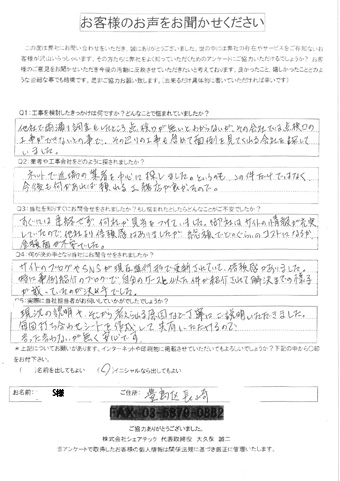 お客様のお声をお聞かせください
この度は弊社にお問い合わせをいただき、誠にありがとうございました。世の中には弊社の存在やサービスをご存知ないお客様が沢山いらっしゃいます。
Q1:工事を検討したきっかけは何ですか?どんなことで悩まれていましたか?
他社で雨漏り調査をしたところ点検口が無いとわからないが、その会社では点検口の
工事ができないとの事で、その辺りの工事も含めて面倒を見てくれる会社を探して
いました。
Q2:業者や工事会社をどのように探されましたか?
ネットで近隣の業者を中心に探しました。というのも、この件だけではなく、
今後も何かあれば頼れる工務店が良かったので。
Q3:当社を知りすぐにお問合せをされますか?もし悩まれたとしたらどんなことがご不安でしたか?
すぐには連絡せず、何社か見当をつけていました。御社はサイトの情報が充実
していたので、他社より信頼感はありましたが、総額でどのくらいのコストになるか
金額面が不安でした。
Q4:何が決め手となり当社にお問合せをされましたか?
サイトのブログやSNSが現在進行形で更新されていて、信頼感がありました。
特に事例紹介のブログで、自分のケースと似た件が紹介されて解決までの様子
が載っていたのが決め手でした。
Q5:実際に当社担当者がお伺いしていかがでしたでしょうか?
現況の説明や、そこから考えられる原因など丁寧にご説明いただきました。
毎回打ち合わせシートを作成して共有いただけるので
言った言わないが無く安心です。
お名前: S様 ご住所: 豊島区長崎
FAX-03-5879-0882
ご協力ありがとうございました。
株式会社シェアテック 代表取締役 大久保 誠二
※アンケートで取得したお客様の個人情報は関係法規に基づき厳正に管理いたします。